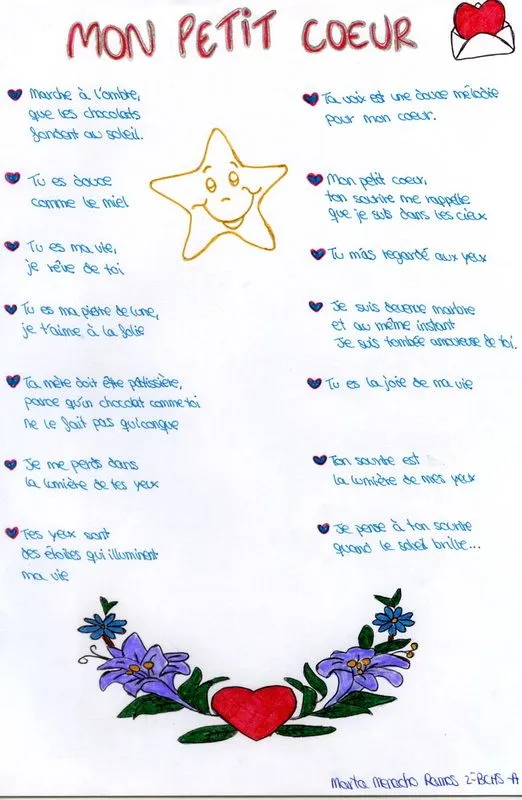 MON PETIT COEUR
Marche à l'ombre,
que les chocolats
fondent au soleil.
Tu es douce
comme le miel
Tu es ma vie,
je rêve de toi
Tu es ma pierre de lune,
je t'aime à la folie
Ta mère doit être pâtissière,
parce qu'un chocolat comme toi
ne le fait pas quiconque
Je me perds dans
la lumière de tes yeux
Tes yeux sont
des étoiles qui illuminent
ma vie
Ta voix est une douce mélodie
pour mon coeur.
Mon petit coeur,
ton sourire me rappelle
que je suis dans les cieux
Tu m'as regardé aux yeux
Je suis devenue marbre
et au même instant
Je suis tombée amoureuse de toi.
Tu es la joie de ma vie
Ton sourire est
la lumière de mes yeux
Je pense à ton sourire
quand le soleil brille...
Marta Menacho Ramos 2-BCHS-A